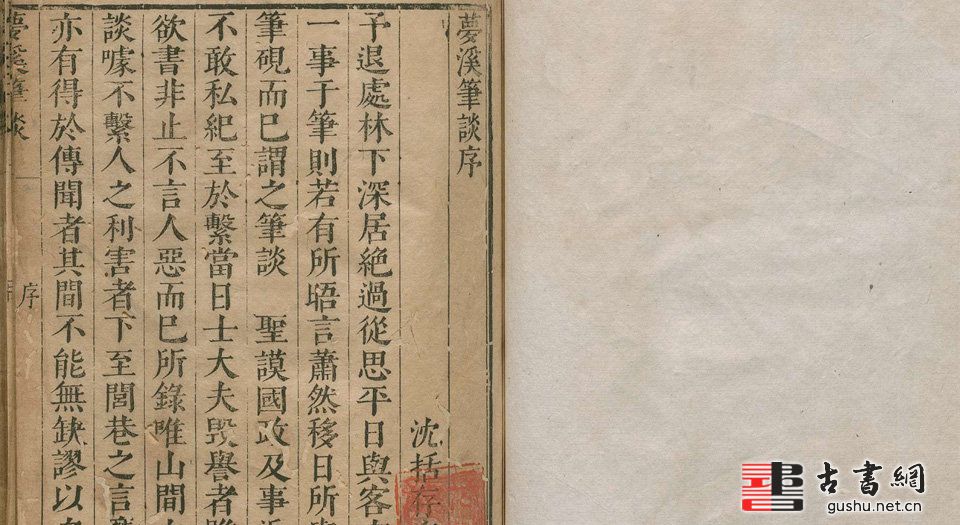 夢溪筆談序
沈括存
予退處林下深居絶過從思平日與客
一事于筆則若有所晤言蕭然移日所
筆硯而已謂之筆談　聖謨國政及事
不敢私紀至於繫當日士大夫毀譽者
欲書非止不言人惡而已所錄唯山間
談噱不繫人之利害者下至閭巷之言
亦有得於傳聞者其間不能無缺謬以
夢溪筆談
序
古書網
gushu.net.cn